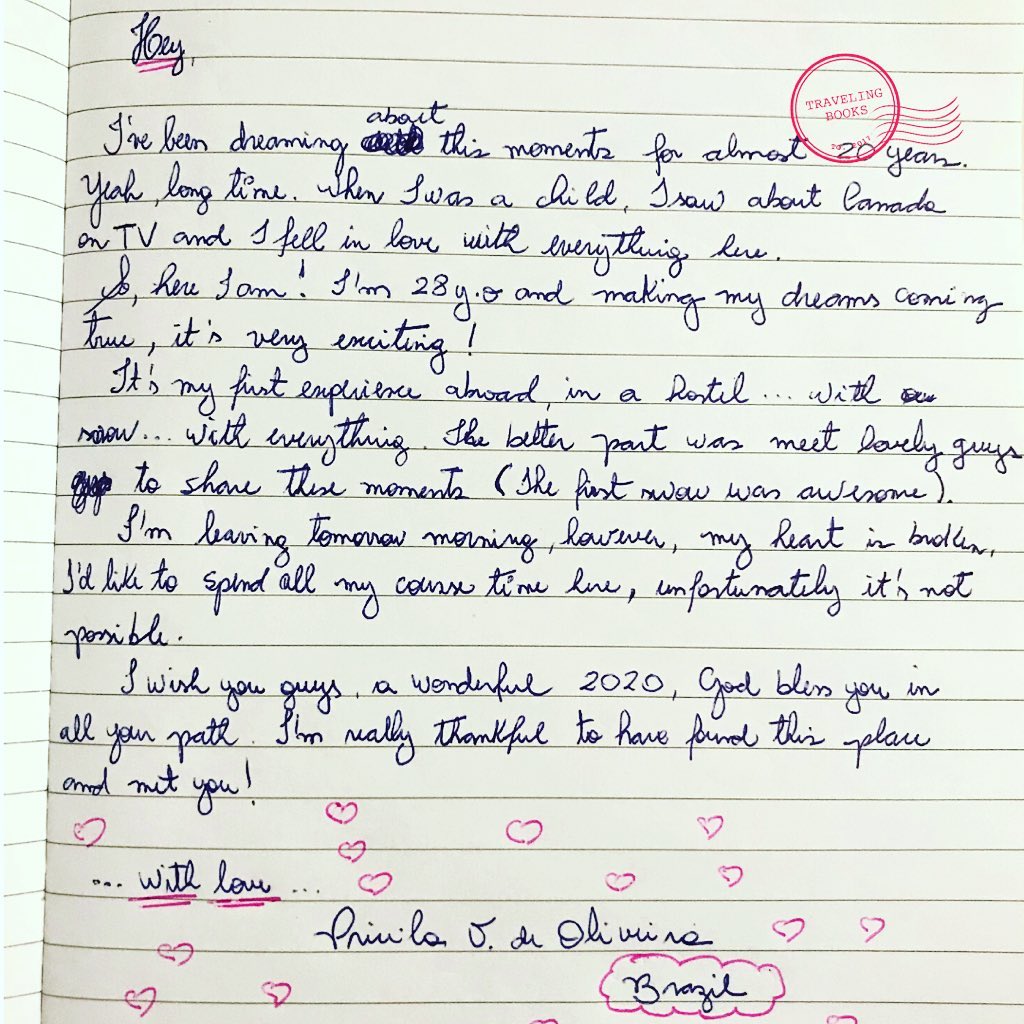 Hey,
TRAVELING
BOOKS
about
I've been dreaming this moments for almost 20 years.
Yeah, long time. When I was a child, I saw about Canada
on TV and I fell in love with everything here.
So, here I am! I'm 28 y.o and making my dreams coming
true, it's very exciting!
It's my first experience abroad, in a hostel... with
snow... with everything. The better part was meet lovely guys
to share these moments (The first snow was awesome).
I'm leaving tomorrow morning, however, my heart is broken,
I'd like to spend all my course time here, unfortunately it's not
possible.
I wish you guys, a wonderful 2020, God bless you in
all your path. I'm really thankful to have found this place
and met you!
... with love ...
Priscila V. de Oliveira
Brazil